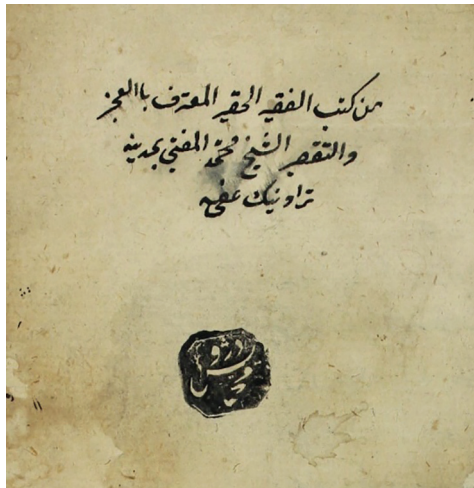 من كتب الفقير الحقير المعترف باالعجز
والتقصير الشيخ محمد المفتي بمدينة
تراونيك عفي عنه